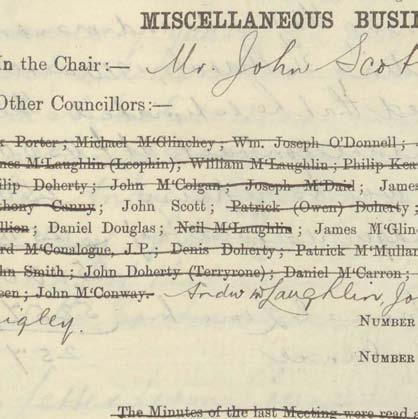 MISCELLANEOUS BUSI
In the Chair:— Mr. John Scot
Other Councillors:—
k Porter; Michael M‘Glinchey; Wm. Joseph O'Donnell;
nes M‘Laughlin (Leophin); William M‘Laughlin; Philip Kea
ilip Doherty; John M‘Colgan; Joseph M‘Daid; James
thony Canny; John Scott; Patrick (Owen) Doherty;
llion; Daniel Douglas; Neil M‘Laughlin; James M‘Glin
ard M‘Conalogue, J.P.; Denis Doherty; Patrick M‘Mullan
hn Smith; John Doherty (Terryrone); Daniel M‘Carron;
een; John M‘Conway. Andw McLaughlin, Jo
igley.
NUMBER
NUMBER
The Minutes of the last Meeting were read a